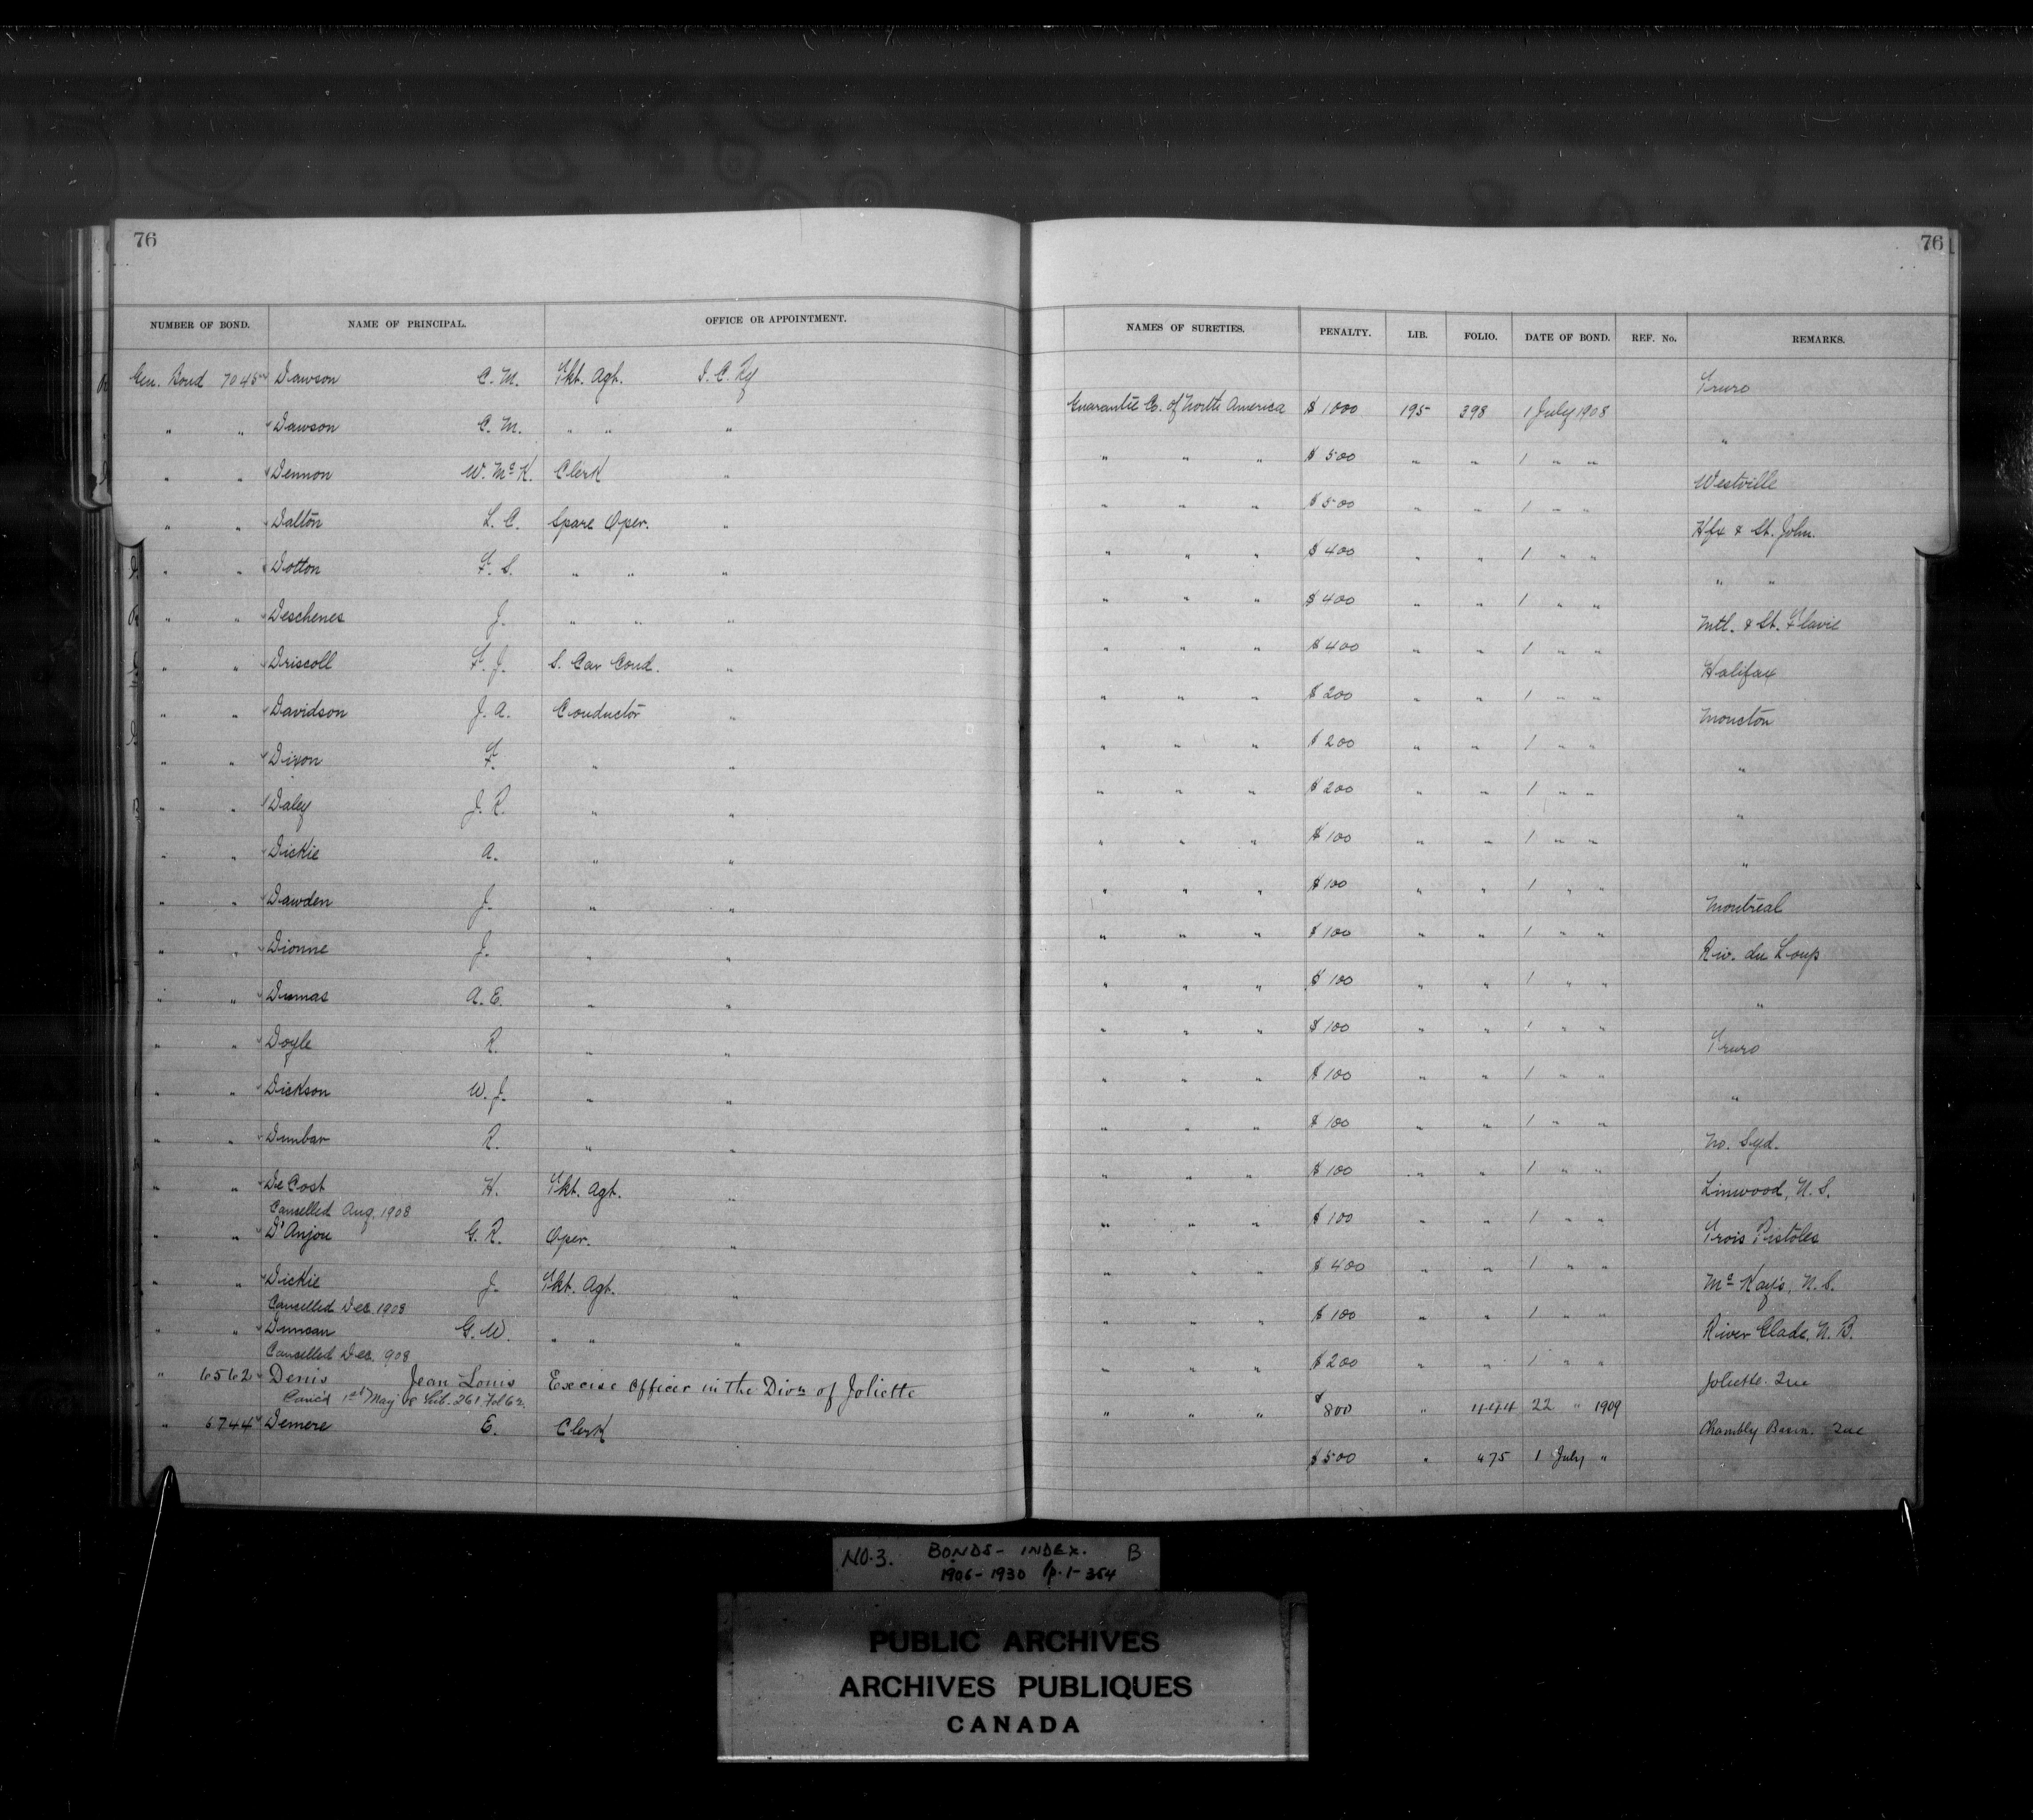 76 76
NUMBER OF BOND. NAME OF PRINCIPAL. OFFICE OR APPOINTMENT. NAMES OF SURETIES. PENALTY. LIB. FOLIO. DATE OF BOND. REF. No. REMARKS.
Gen. Bond 7045 Dawson C. M. Tkt. Agt. I. C. Ry Guarantee Co. of North America $1000 195 398 1 July 1908 Truro
" " Dawson C. M. " " " " " " $500 " " 1 " " "
" " Dennon W. McK. Clerk " " " " $500 " " 1 " " Westville
" " Dalton L. C. Spare Oper. " " " " $400 " " 1 " " Hfx & St. John.
" " Dotton F. S. " " " " " " $400 " " 1 " " " "
" " Deschenes J. " " " " " " $400 " " 1 " " Mtl. & St. Flavie
" " Driscoll F. J. S. Car Cond. " " " " $200 " " 1 " " Halifax
" " Davidson J. A. Conductor " " " " $200 " " 1 " " Moncton
" " Dixon F. " " " " " $200 " " 1 " " "
" " Daley J. R. " " " " " $100 " " 1 " " "
" " Dickie A. " " " " " $100 " " 1 " " "
" " Dawden J. " " " " " $100 " " 1 " " Montreal
" " Dionne J. " " " " " $100 " " 1 " " Riv. du Loup
" " Dumas A. E. " " " " " $100 " " 1 " " "
" " Doyle R. " " " " " $100 " " 1 " " Truro
" " Dickson W. J. " " " " " $100 " " 1 " " "
" " Dunbar R. " " " " " $100 " " 1 " " No. Syd.
" " DeCost H. Tkt. Agt. " " " " $100 " " 1 " " Linwood, N. S.
Cancelled Aug. 1908
" " D'Anjou G. R. Oper. " " " " $400 " " 1 " " Trois Pistoles
" " Dickie J. Tkt. Agt. " " " " $100 " " 1 " " McKay's, N. S.
Cancelled Dec. 1908
" " Duncan G. W. " " " " " " $200 " " 1 " " River Glade, N. B.
Cancelled Dec. 908
" 6562 Denis Jean-Louis Excise Officer in the Divn of Joliette " " " $800 " 444 22 " 1909 Joliette. Que
Canc'd 1st May 18 Lib. 261 Fol 62.
" 6744 Demere E. Clerk $500 " 475 1 July " Chambly Basin. Que
NO. 3. BONDS - INDEX. B
1906 - 1930 p. 1 - 364
PUBLIC ARCHIVES
ARCHIVES PUBLIQUES
CANADA